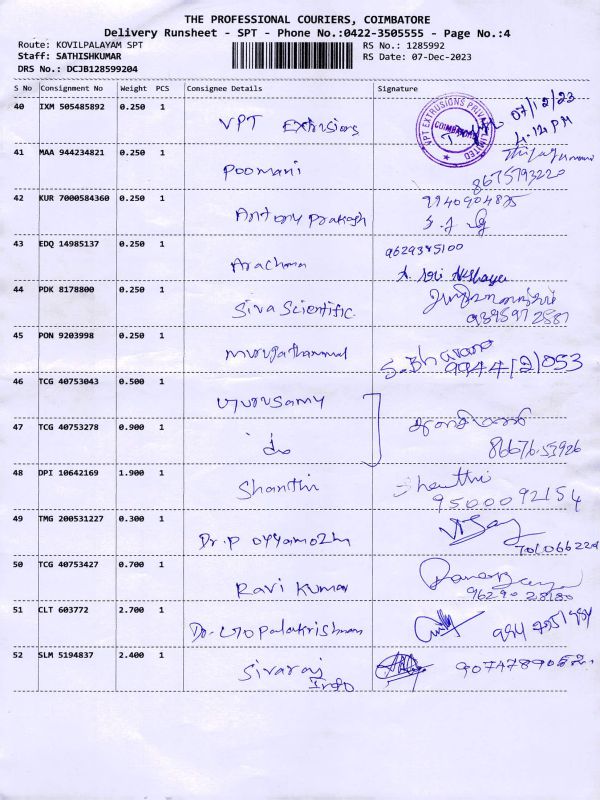 THE PROFESSIONAL COURIERS, COIMBATORE
Delivery Runsheet - SPT - Phone No.:0422-3505555 - Page No.:4
Route: KOVILPALAYAM SPT RS No.: 1285992
Staff: SATHISHKUMAR RS Date: 07-Dec-2023
DRS No.: DCJB128599204
S No Consignment No Weight PCS Consignee Details Signature
40 IXM 505485892 0.250 1 VPT Extrusions VPT EXTRUSIONS PRIVATE LIMITED COIMBATORE 07/12/23
4.12 PM
41 MAA 944234821 0.250 1 Poomani
8675793220
42 KUR 7000584360 0.250 1 Antony prakash
43 EDQ 14985137 0.250 1 9629385100
A. Sri Akshaya
44 PDK 8178800 0.250 1 Siva Scientific
9395972587
45 PON 9203998 0.250 1 S. Bharane
46 TCG 40753043 0.500 1
47 TCG 40753278 0.900 1 do
86676 53926
48 DPI 10642169 1.900 1 Shanthi Shanthi
9500092154
49 TMG 200531227 0.300 1 Dr. P
50 TCG 40753427 0.700 1 Ravi Kumar
96290 28180
51 CLT 603772 2.700 1 Dr. Gopalakrishnan
52 SLM 5194837 2.400 1 Sivaraj